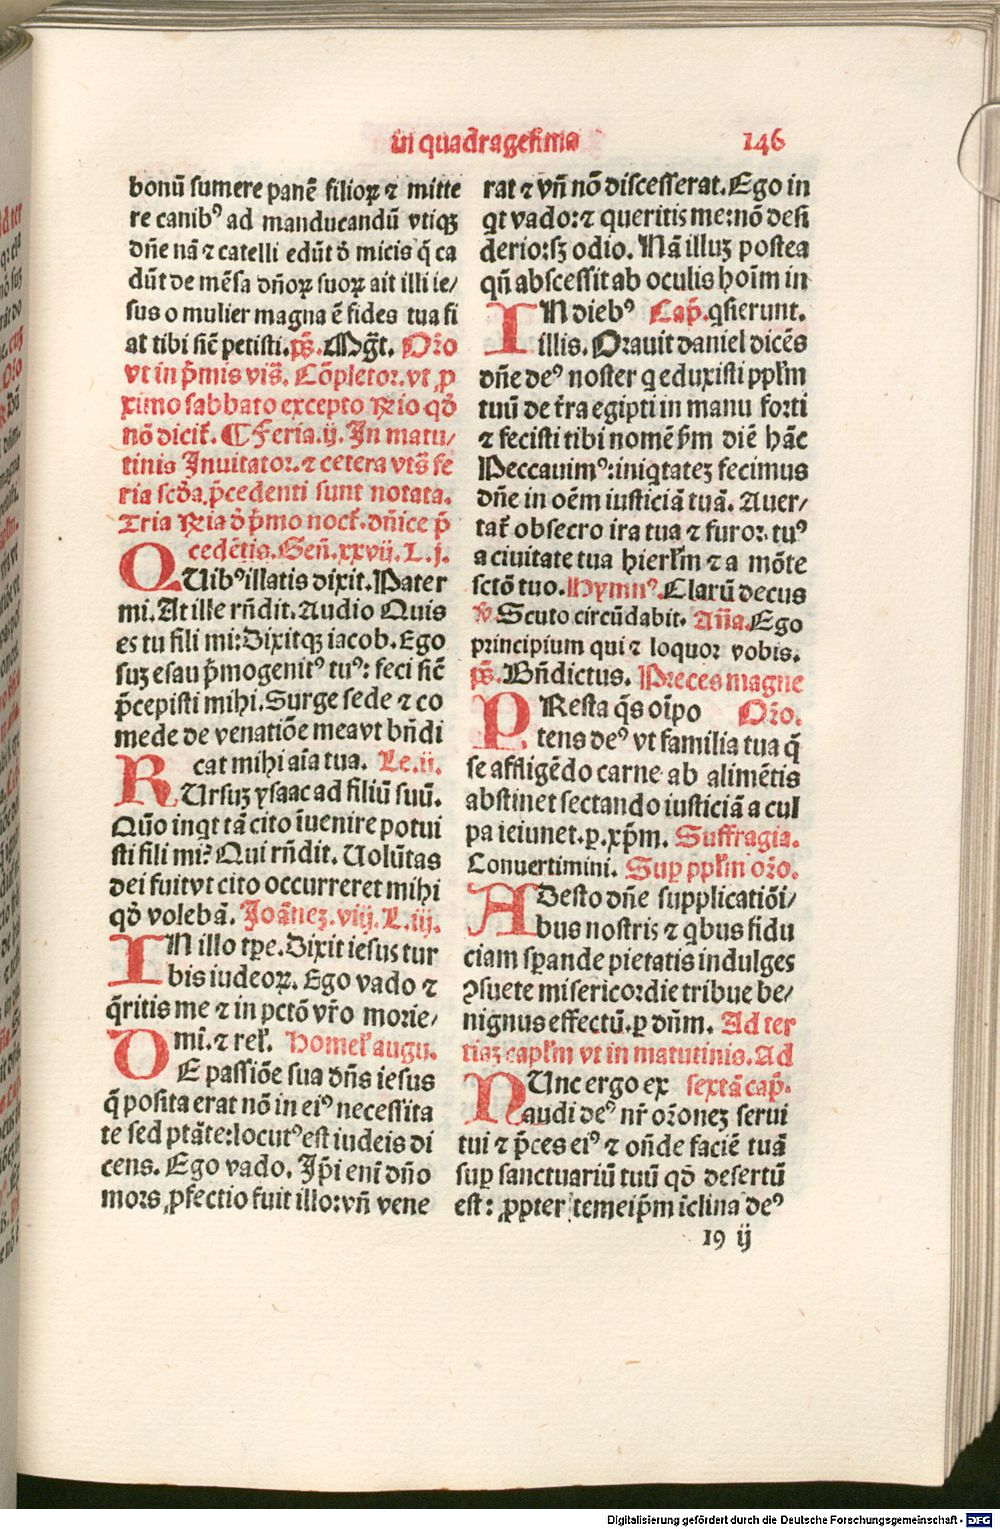 in quadragesima 146
bonū sumere panē filioꝝ ⁊ mitte
re canibꝰ ad manducandū vtiqꝫ
dñe nā ⁊ catelli edūt ð micis q̄ ca
dūt de mēsa dñoꝝ suoꝝ ait illi ie/
sus o mulier magna ē fides tua fi
at tibi sic̄ petisti. ps̄. Mḡt. Oꝛo
vt in p̄mis vis̄. Cōpletoꝛ. vt ꝓ
ximo sabbato excepto Rio qð
nō dicit̄. ¶ Feria. ij. In matu/
tinis Inuitatoꝛ. ⁊ cetera vts̄ fe
ria scða p̄cedenti sunt notata.
Tria Ria ð p̄mo noct̄. dñice p̄
cedētis. Geñ. xxvij. L. j.
QUibꝰ illatis dixit. Pater
mi. At ille rñdit. Audio Quis
es tu fili mi: Dixitqꝫ iacob. Ego
suꝫ esau p̄mogenitꝰ tuꝰ: feci sic̄
p̄cepisti mihi. Surge sede ⁊ co
mede de venatiōe mea vt bn̄di
cat mihi aīa tua. Le. ij.
RUrsuꝫ ysaac ad filiū suū.
Quō inqt tā cito īuenire potui
sti fili mi? Qui rñdit. Uolūtas
dei fuit vt cito occurreret mihi
qð volebā. Joānez. viij. L. iij.
IN illo tꝑe. Dixit iesus tur
bis iudeoꝝ. Ego vado ⁊
q̄ritis me ⁊ in pctō vr̄o morie/
mi. ⁊ rel̄. Homel̄ augu.
DE passiōe sua dñs iesus
q̄ posita erat nō in eiꝰ necessita
te sed ptāte: locutꝰ est iudeis di
cens. Ego vado. Ip̄i eni dño
mors ꝓfectio fuit illo: vñ vene
rat ⁊ vñ nō discesserat. Ego in
qt vado: ⁊ queritis me: nō desi
derio: sꝫ odio. Nā illuꝫ postea
qñ abscessit ab oculis hoīm in
IN diebꝰ Cap̄. qsierunt.
illis. Orauit daniel dicēs
dñe deꝰ noster q eduxisti ppl̄m
tuū de t̄ra egipti in manu forti
⁊ fecisti tibi nomē p̄m diē hāc
Peccauimꝰ: iniqtatez fecimus
dñe in oēm iusticiā tuā. Auer/
tat̄ obsecro ira tua ⁊ furoꝛ. tuꝰ
a ciuitate tua hierl̄m ⁊ a mōte
sctō tuo. Hymnꝰ. Clarū decus
℣. Scuto circūdabit. Añā. Ego
principium qui ⁊ loquor vobis.
ps̄. Bn̄dictus. Preces magne
PResta q̄s oīpo Oꝛo.
tens deꝰ vt familia tua q̄
se affligēdo carne ab alimētis
abstinet sectando iusticiā a cul
pa ieiunet. ꝑ. xp̄m. Suffragia.
Convertimini. Suꝑ ppl̄m oꝛo.
ADesto dñe supplicatiōi/
bus nostris ⁊ qbus fidu
ciam sꝑande pietatis indulges
ꝯsuete misericordie tribue be/
nignus effectū. ꝑ dñm. Ad ter
tiaꝫ capl̄m vt in matutinis. Ad
NUnc ergo ex sextā cap̄.
audi deꝰ nr̄ oꝛonez serui
tui ⁊ p̄ces eiꝰ ⁊ on̄de faciē tuā
suꝑ sanctuariū tuū qð desertū
est: ꝓpter temeip̄m īclina deꝰ
19 ij
Digitalisierung gefördert durch die Deutsche Forschungsgemeinschaft - DFG